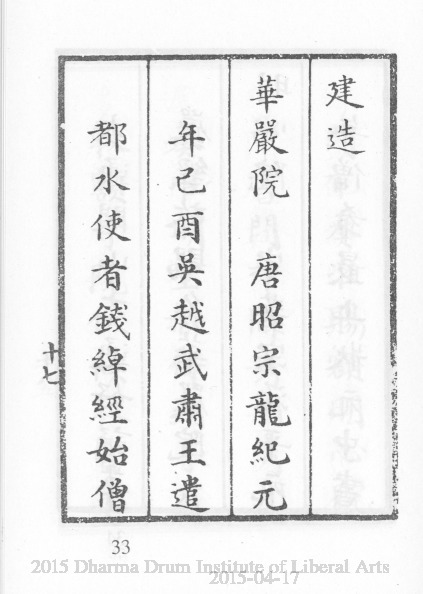 建造
華嚴院　唐昭宗龍紀元
年己酉吳越武肅王遣
都水使者錢綽經始僧
十七
33
2015 Dharma Drum Institute of Liberal Arts
2015-04-17